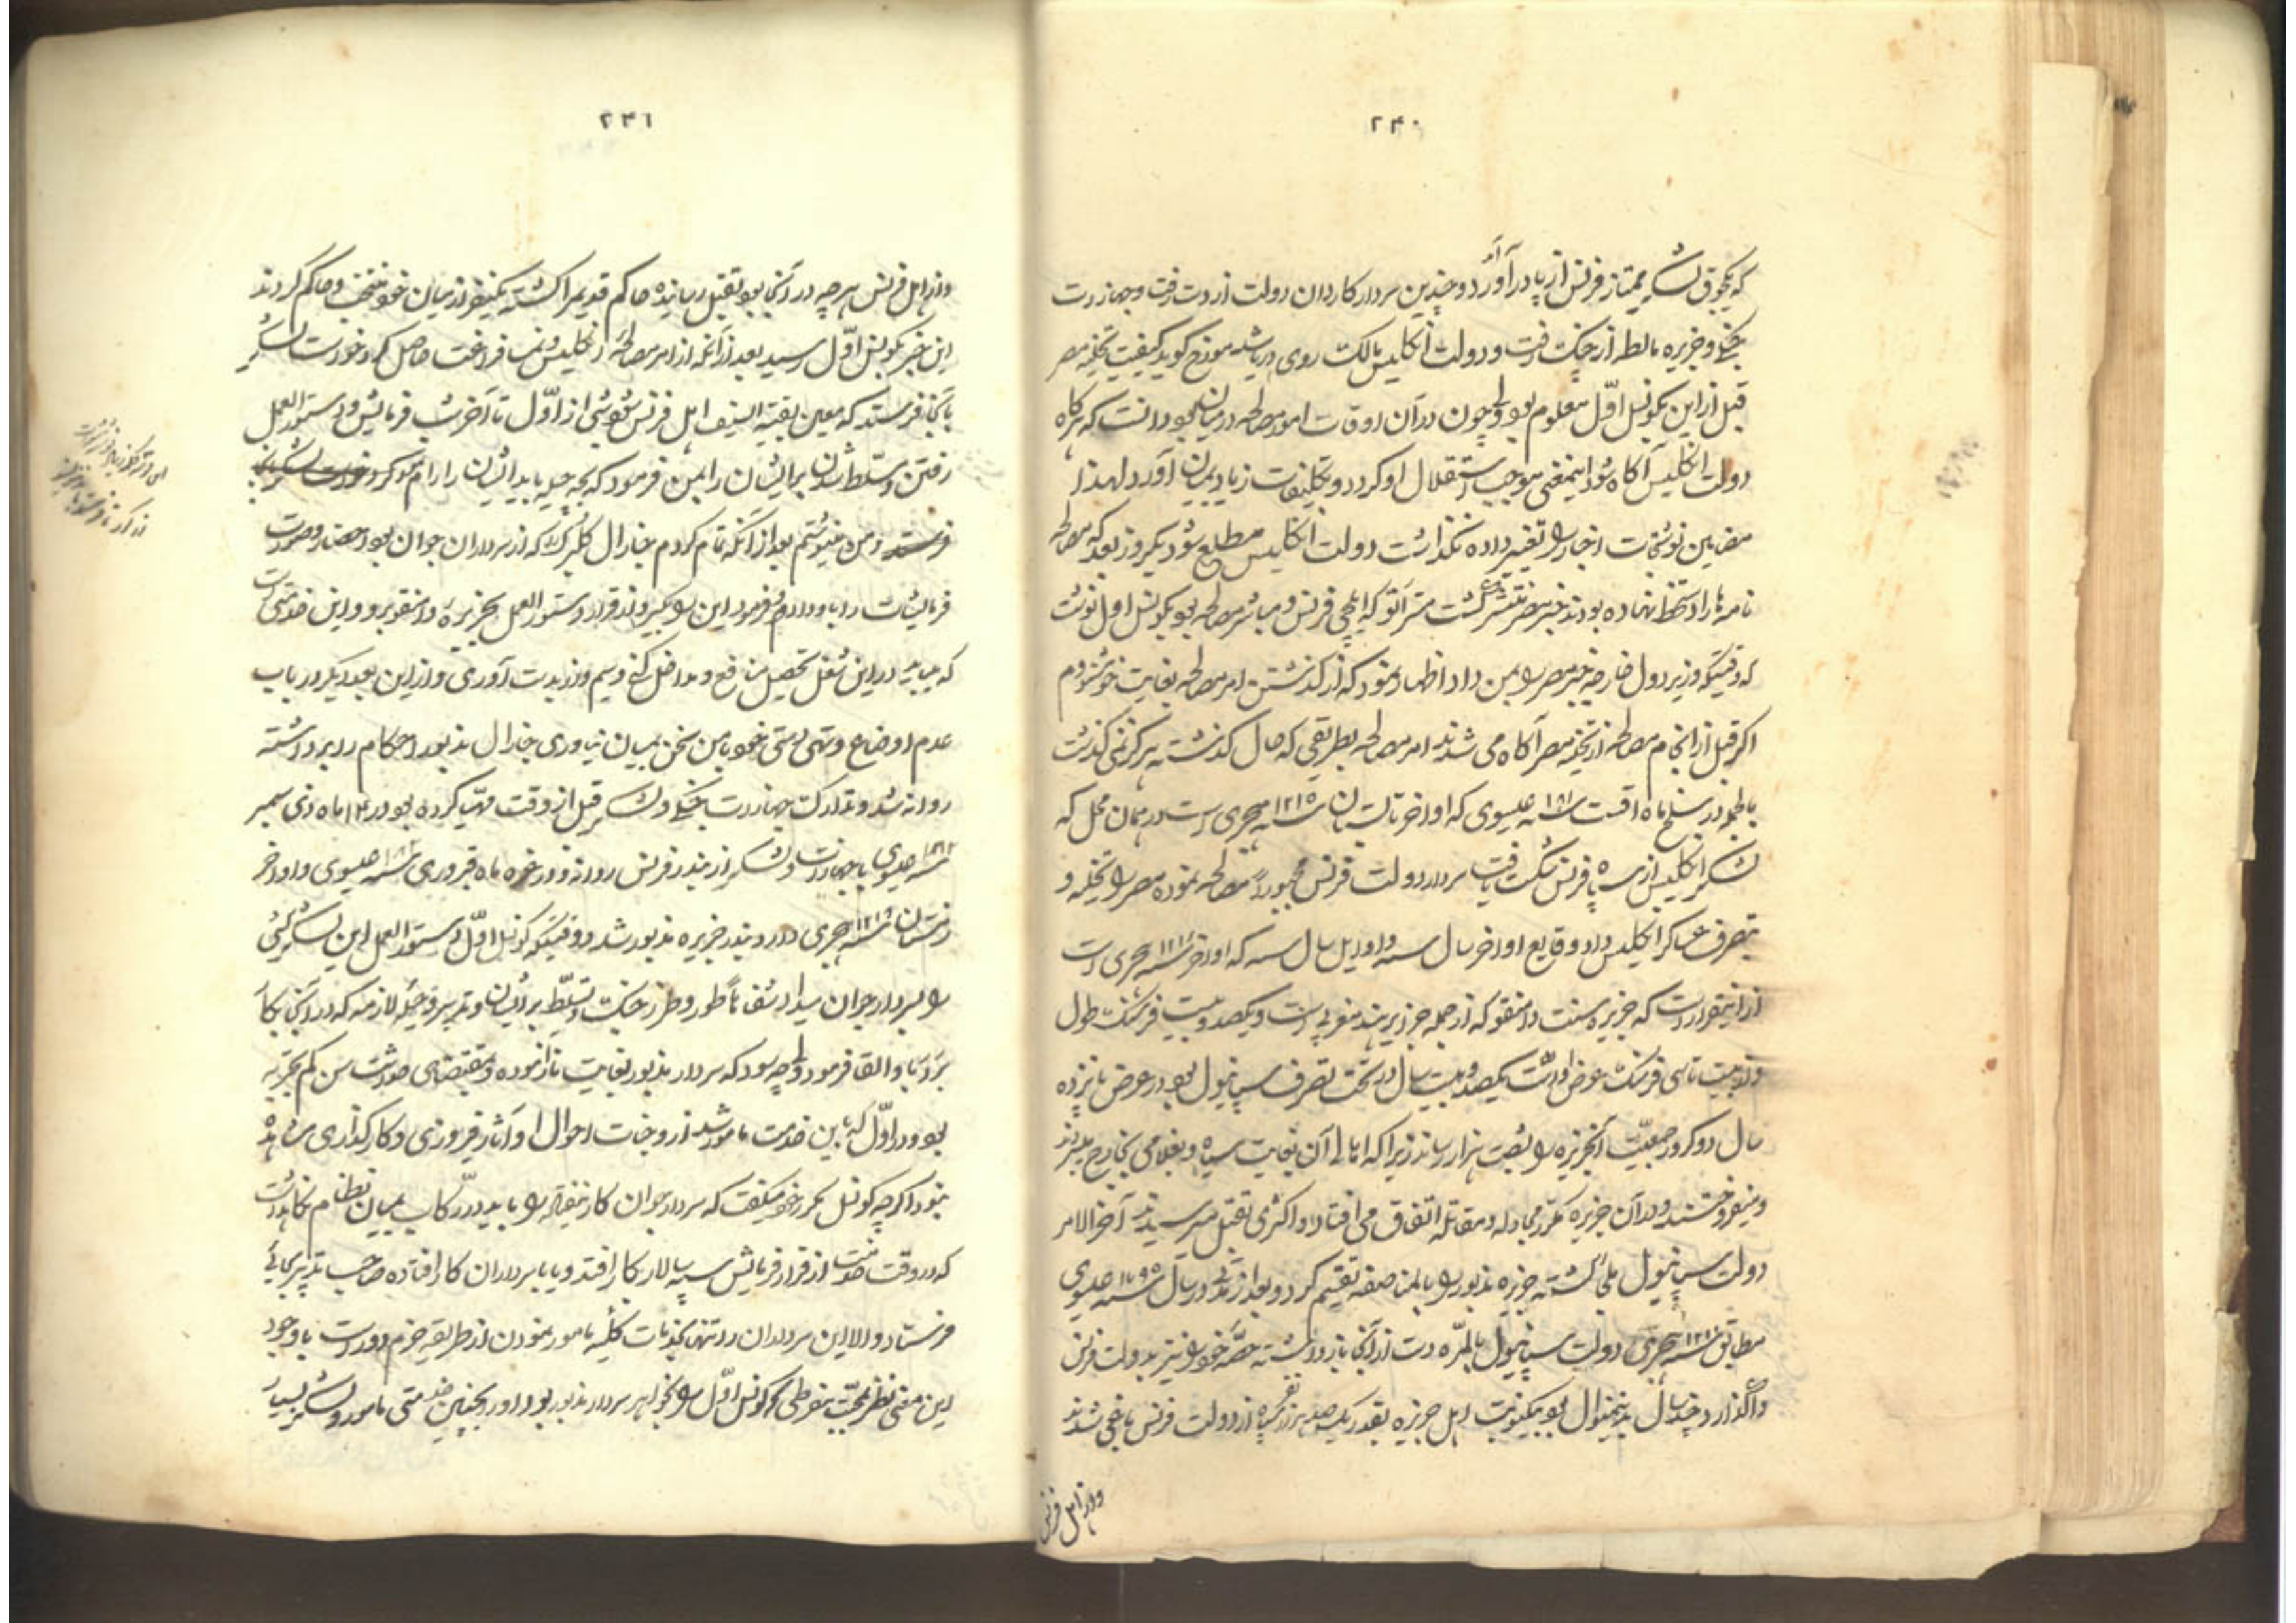 ۲۴۰
که یکجوق لشکر ممتاز فرنس از پا در آورد و چندین سردار کاردان دولت از دست رفت و جهازات
جنگی و جزیره مالطه از چنگ رفت و دولت انگلیس مالک روی دریا شد مورخ گوید کیفیت تخلیه مصر
قبل از این بکونسل اول معلوم بود ولی چون در آن اوقات امور مصالحه در میان بود دانست که هرگاه
دولت انگلیس آگاه شود اینمعنی موجب استقلال او گردد و تکلیفات زیاد بمیان آورد لهذا
مضامین نوشتجات اخبار را تغییر داده نگذاشت دولت انگلیس مطلع شود یکروز بعد که مصالحه
نامه را دستخط نهاده بودند خبر مصر منتشر گشت که ایلچی فرنس و مباشر مصالحه بود بکونسل اول نوشت
که وقتیکه وزیر دول خارجه خبر مصر را بمن داد اظهار نمود که از گذشتن امر مصالحه بغایت خوشنودم
اگر قبل از انجام مصالحه از تخلیه مصر آگاه می شدند امر مصالحه بطریقی که حال گذشته هرگز نمی گذشت
بالجمله در سلخ ماه اقست سنه ۱۸۰۱ عیسوی که اواخر تابستان سنه ۱۲۱۵ هجری است در همان محل که
لشکر انگلیس از سپاه فرنس شکست یافت سردار دولت فرنس مجبوراً مصالحه نموده مصر را تخلیه و
بتصرف عساکر انگلیس داد وقایع اواخر سال سنه و اوایل سال سنه که اواخر سنه ۱۲۱۶ هجری است
از اینقرار است که جزیره سنت دامنقو که از جمله جزایر هند مغربی است و یکصد و بیست فرسنگ طول
و از بیست تا سی فرسنگ عرض اوست یکصد و بیست سال در تحت تصرف سپانیول بود در عرض پانزده
سال دو کرور جمعیت آنجزیره را بشصت هزار رساندند زیرا که اهالی آن بغایت سیاه و بغلامی بخارج میبردند
و میفروختند و در آن جزیره مکرر مجادله و مقاتله اتفاق می افتاد و اکثری بقتل میرسیدند آخر الامر
دولت سپانیول ملجأ گشته جزیره مذبور را بالمناصفه تقسیم کرد و بعد از آن در سال سنه ۱۷۹۵ عیسوی
مطابق سنه ۱۲۱۰ هجری دولت سپانیول بالمره دست از آنجا باز داشته حصه خود را نیز بدولت فرنس
واگذارد چند سال بدینمنوال بود یکنوبت اهل جزیره بقدر یکصد هزار نفر سیاه از دولت فرنس یاغی شدند
و از اهل فرنس
۲۴۱
و از اهل فرنس هر چه در آنجا بود بقتل رسانیده حاکم قدیم را کشته یکنفر از میان خود منتخب و حاکم کردند
این خبر بکونسل اول رسید بعد از آنکه از امر مصالحه انگلیس و نمسه فراغت حاصل کرد خواست لشکر
بآنجا فرستد که معین بقیة السیف اهل فرنس شود شبی از اول تا آخر شب فرمایش و دستور العمل
رفتن و تسلط شدن برایشان را بمن فرمود که بچه حیله باید ایشان را رام نمود
و من مینوشتم بعد از آنکه تمام کردم جنارال کلرک را که از سرداران جوان بود احضار و صورت
فرمایشات را باو دادم فرمود این را بگیر و از قرار دستور العمل بجزیره دامنقو برو و این خدمتی است
که میباید در این شغل تحصیل منافع و مداخل کنی و سیم و زر بدست آوری و از این بعد دیگر در باب
عدم اوضاع و تهی دستی خود با من سخن بمیان نیاوری جنارال مذبور احکام را برداشته
روانه شد و تدارک جهازات جنگی و لشکر قبل از وقت مهیا کرده بود در ۱۴ ماه دی سمبر
سنه ۱۸۰۱ عیسوی با جهازات و لشکر از بندر فرنس روانه و در غره ماه فبروری سنه ۱۸۰۲ عیسوی و اواخر
زمستان سنه ۱۲۱۶ هجری وارد بندر جزیره مذبور شد و وقتیکه کونسل اول دستور العمل این لشکر کشی
را بسردار جوان میداد شفاهاً طور و طرز جنگ و تسلط برایشان و تدبیر و حیله لازمه که در آنجا بکار
برد باو القا فرمود ولی چه سود که سردار مذبور بغایت نا آزموده و بمقتضای حداثت سن کم تجربه
بود و در اول که باین خدمت مامور شد از وجنات احوال او آثار فیروزی و کارگذاری مشاهده
نبود اگر چه کونسل مکرر خود میگفت که سردار جوان کار ندیده را باید در رکاب میان نظام نگاهداشت
که در وقت خدمت از قرار فرمایش سپه سالار بکار افتد و یا با سرداران کار افتاده صاحب تدبیر بجائی
فرستاد و الا این سرداران را تنها بخدمات کلیه مامور نمودن از طریقه حزم دور است با وجود
این معنی نظر بمحبت مفرطی که کونسل اول را بخواهر سردار مذبور بود او را بچنین خدمتی مامور و لشکر بسیار